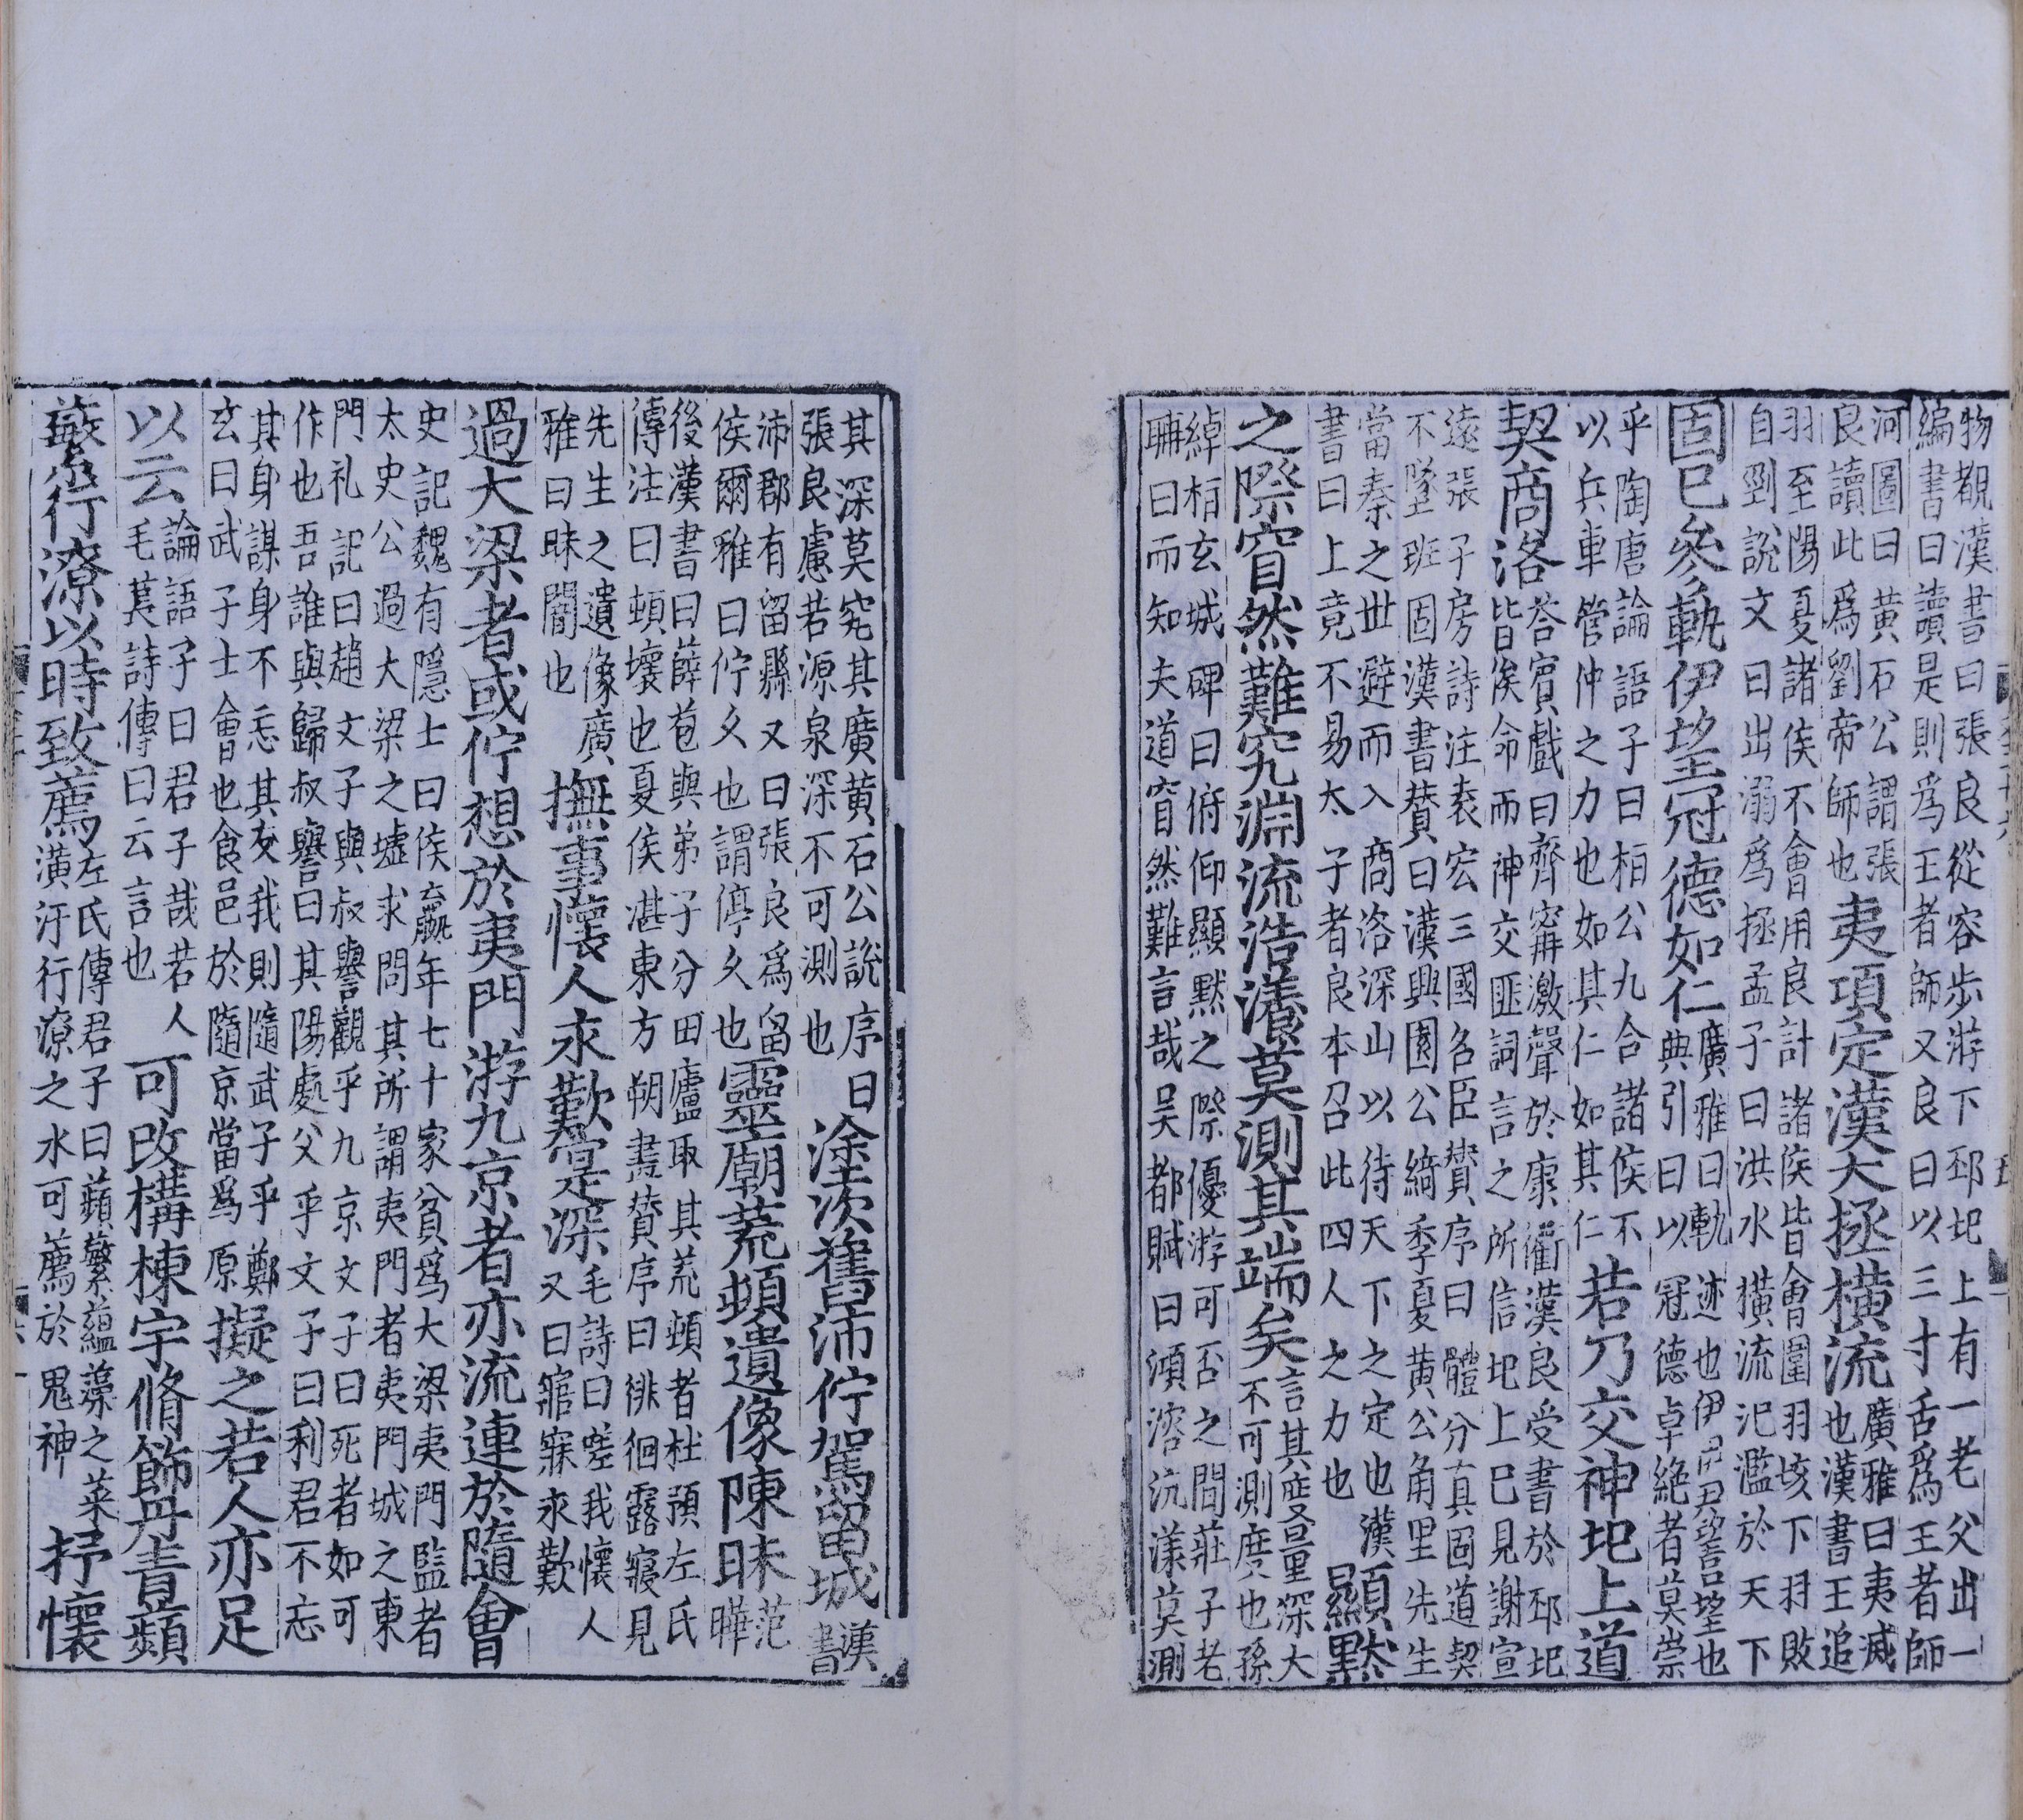 物覩漢書曰張良從容步游下邳圯上有一老父出一
編書曰讀是則爲王者師又良曰以三寸舌爲王者師
河圖曰黄石公謂張
良讀此爲劉帝師也
夷項定漢大拯横流
廣雅曰夷滅
也漢書王追
羽至陽夏諸侯不會用良計諸侯皆會圍羽垓下羽敗
自剄說文曰出溺爲拯孟子曰洪水横流汜濫於天下
固已參軌伊望冠德如仁
廣雅曰軌迹也伊伊尹望吕望也
典引曰以冠德卓絶者莫崇
乎陶唐論語子曰桓公九合諸侯不
以兵車管仲之力也如其仁如其仁
若乃交神圯上道
契商洛
荅賔戲曰齊甯激聲於康衢漢良受書於邳圯
皆俟命而神交匪詞言之所信圯上已見謝宣
遠張子房詩注袁宏三國名臣贊序曰體分真固道契
不墜班固漢書贊曰漢興園公綺季夏黄公角里先生
當秦之丗避而入商洛深山以待天下之定也漢
書曰上竟不易太子者良本召此四人之力也
顯黙
之際窅然難究淵流浩瀁莫測其端矣
言其度量深大
不可測度也孫
綽桓玄城碑曰俯仰顯默之際優游可否之間莊子老
聃曰而知夫道窅然難言哉吴都賦曰澒溶沆漾莫測
其深莫究其廣黄石公說序曰
張良慮若源泉深不可測也
塗次舊沛佇駕留城
漢
書
沛郡有留縣又曰張良爲留
侯爾雅曰佇久也謂停久也
靈廟荒頓遺像陳昧
范
曄
後漢書曰薛苞與弟子分田廬取其荒頓者杜預左氏
傳注曰頓壞也夏侯湛東方朔畫賛序曰徘徊露寢見
先生之遺像廣
雅曰昧闇也
撫事懷人永歎寔深
毛詩曰嗟我懷人
又曰寤寐永歎
過大梁者或佇想於夷門游九京者亦流連於隨會
史記魏有隱士曰侯嬴年七十家貧爲大梁夷門監者
太史公過大梁之墟求問其所謂夷門者夷門城之東
門礼記曰趙文子與叔譽觀乎九京文子曰死者如可
作也吾誰與歸叔譽曰其陽處父乎文子曰利君不忘
其身謀身不忘其友我則隨武子乎鄭
玄曰武子士會也食邑於隨京當爲原
擬之若人亦足
以云
論語子曰君子哉若人
毛萇詩傳曰云言也
可改構棟宇脩飾丹青蘋
蘩行潦以時致薦
左氏傳君子曰蘋蘩蕰藻之菜
潢汙行潦之水可薦於鬼神
抒懷